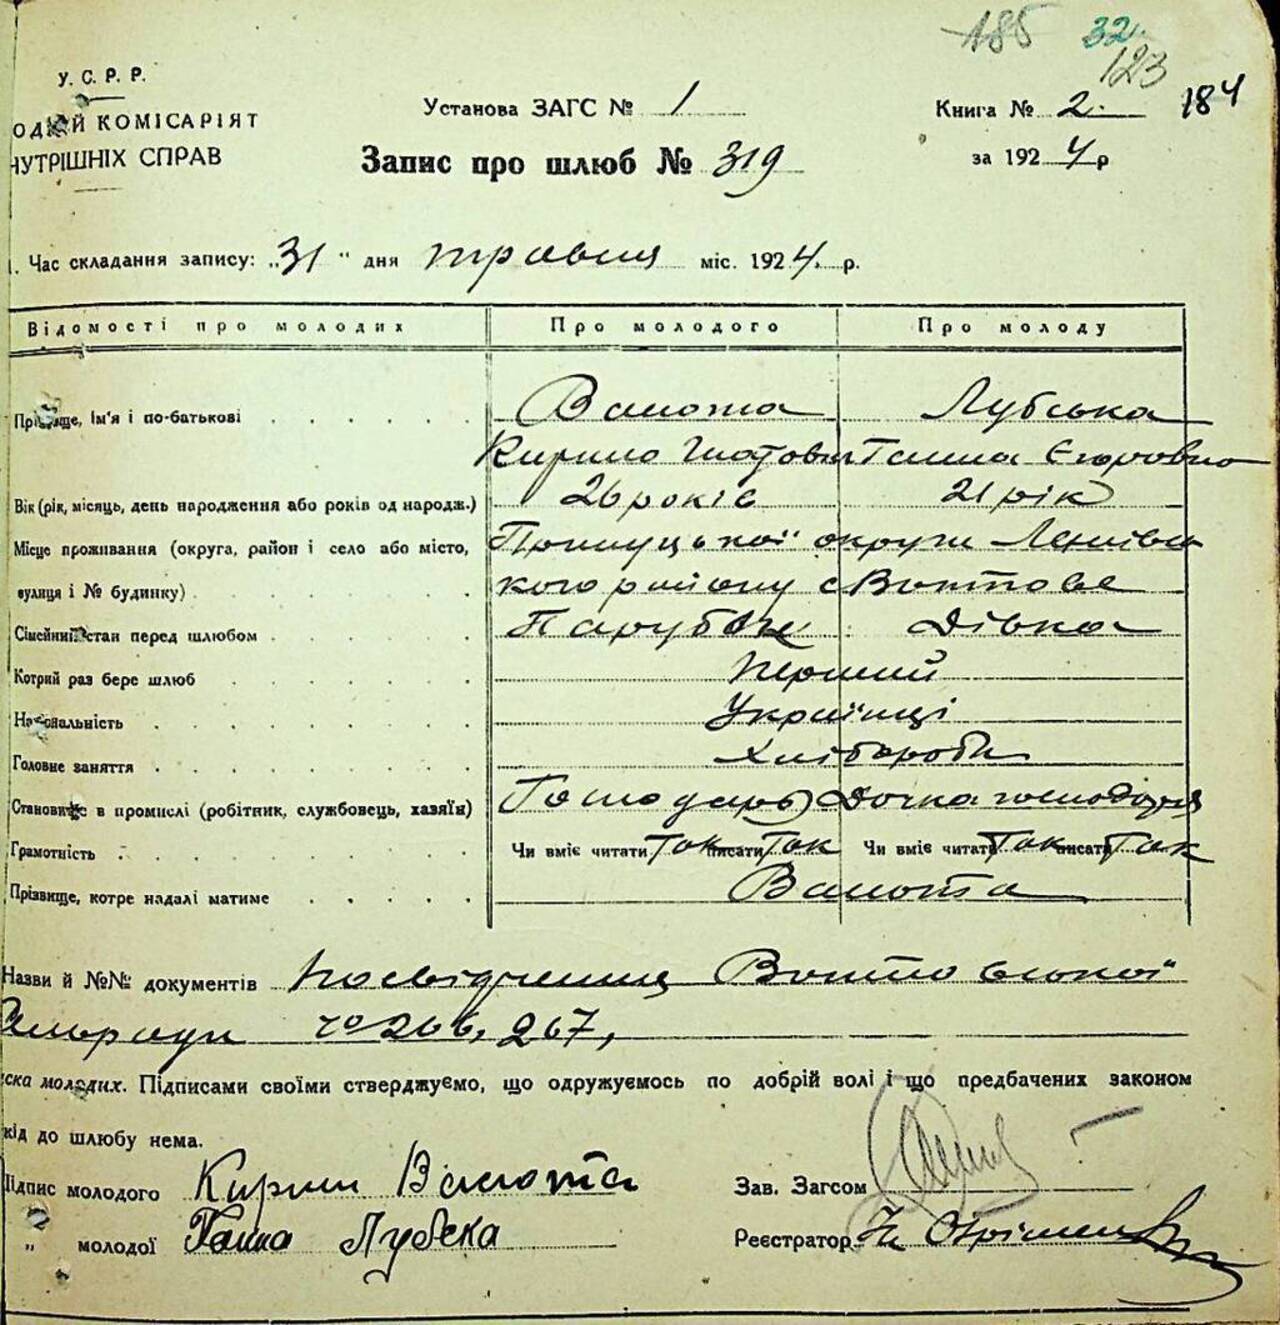 185 32
123
У. С. Р. Р.
Установа ЗАГС № 1
Книга № 2. 184
КОМІСАРІЯТ
НУТРІШНІХ СПРАВ
Запис про шлюб № 319
за 1924 р
Час складання запису: „31" дня травня міс. 1924. р.
Відомості про молодих Про молодого Про молоду
Прізвище, ім'я і по-батькові Лубська
Кирило Ганна Єгоровна
Вік (рік, місяць, день народження або років од народж.) 26 років 21 рік
Місце проживання (округа, район і село або місто, Прилуцької округи
вулиця і № будинку) кого району с Войтове
Сімейний стан перед шлюбом Парубок Дівка
Котрий раз бере шлюб Перший
Національність Українці
Головне заняття Хлібороби
Становище в промислі (робітник, службовець, хазяїн) Господарь Дочка господаря
Грамотність Чи вміє читати Так писати Так Чи вміє читати Так писати Так
Прізвище, котре надалі матиме
Назви й №№ документів Посвідчення Войтовської
Сільради № 266, 267,
ска молодих. Підписами своїми стверджуємо, що одружуємось по добрій волі і що предбачених законом
кід до шлюбу нема.
Підпис молодого Кирил
Зав. Загсом
„ молодої Ганна Лубска
Реєстратор